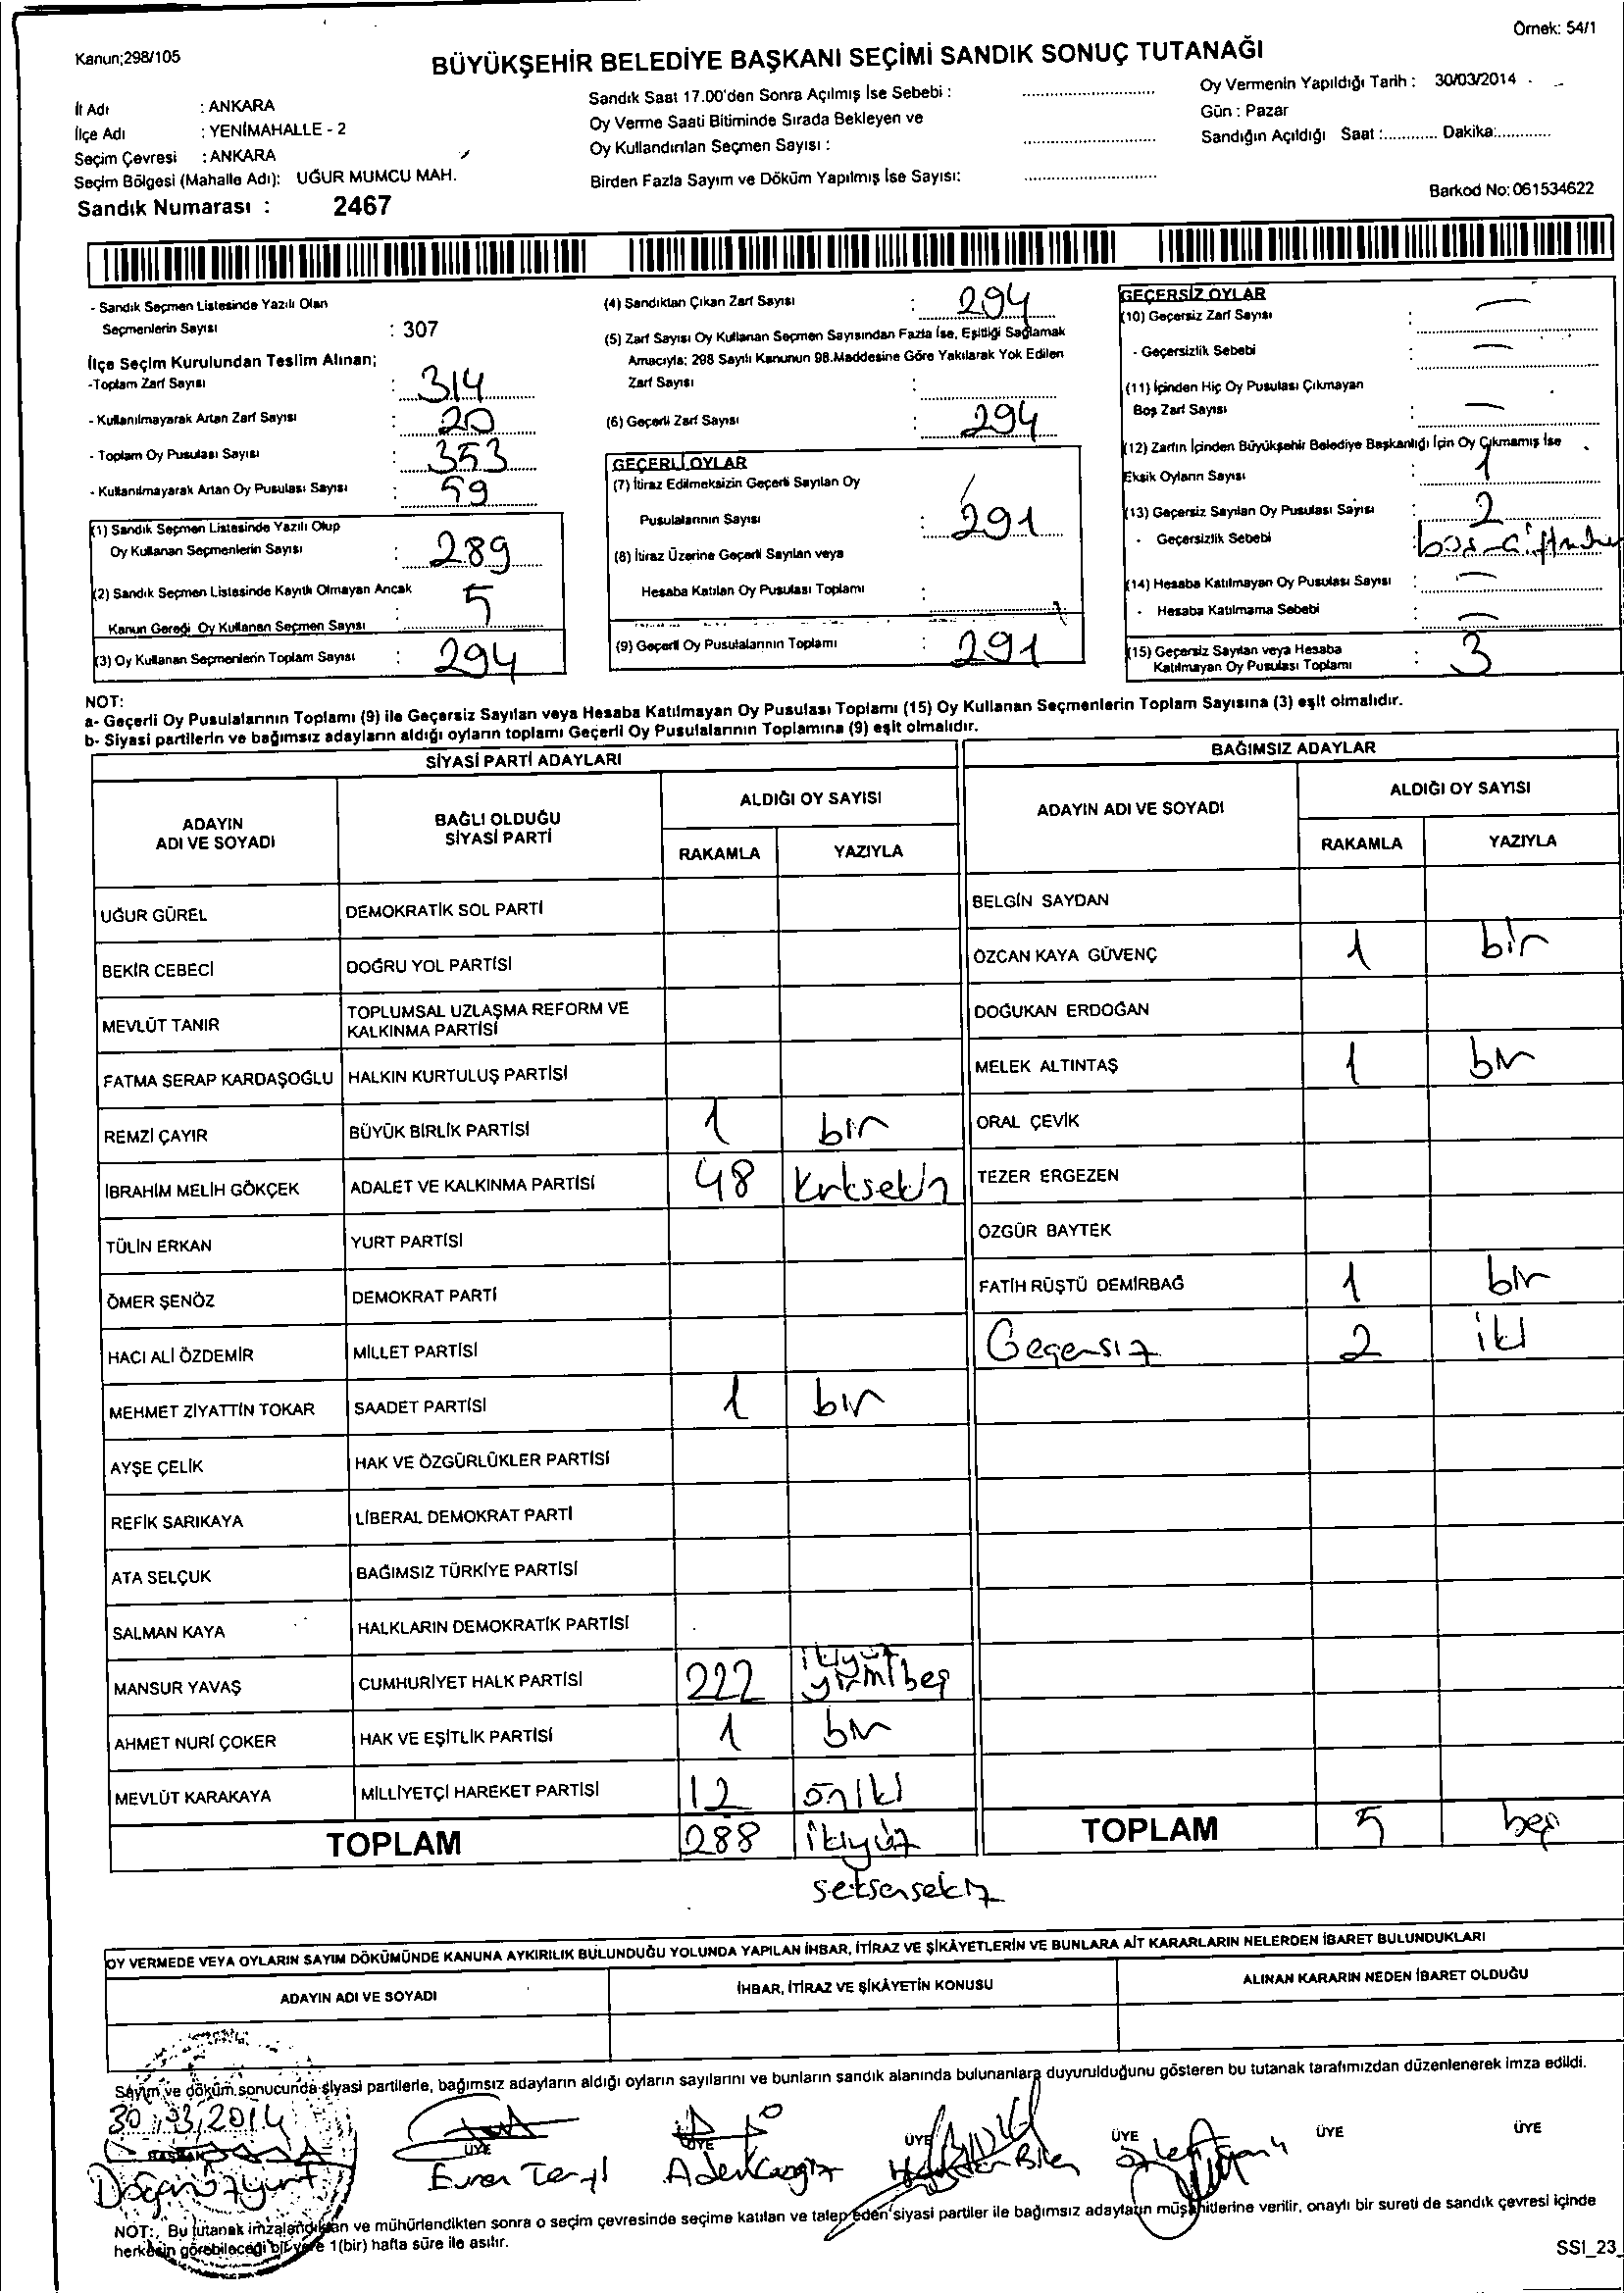 Örnek: 54/1
Kanun;298/105
BÜYÜKŞEHİR BELEDİYE BAŞKANI SEÇİMİ SANDIK SONUÇ TUTANAĞI
İl Adı : ANKARA
İlçe Adı : YENİMAHALLE - 2
Seçim Çevresi : ANKARA
Seçim Bölgesi (Mahalle Adı): UĞUR MUMCU MAH.
Sandık Numarası : 2467
Sandık Saat 17.00'den Sonra Açılmış İse Sebebi :
Oy Verme Saati Bitiminde Sırada Bekleyen ve
Oy Kullandırılan Seçmen Sayısı :
Birden Fazla Sayım ve Döküm Yapılmış İse Sayısı:
Oy Vermenin Yapıldığı Tarih : 30/03/2014
Gün : Pazar
Sandığın Açıldığı Saat :............ Dakika:............
Barkod No: 061534622
- Sandık Seçmen Listesinde Yazılı Olan
Seçmenlerin Sayısı : 307
İlçe Seçim Kurulundan Teslim Alınan;
-Toplam Zarf Sayısı : 314
- Kullanılmayarak Artan Zarf Sayısı : 20
- Toplam Oy Pusulası Sayısı : 353
- Kullanılmayarak Artan Oy Pusulası Sayısı : 59
(1) Sandık Seçmen Listesinde Yazılı Olup
Oy Kullanan Seçmenlerin Sayısı : 289
(2) Sandık Seçmen Listesinde Kayıtlı Olmayan Ancak
Kanun Gereği Oy Kullanan Seçmen Sayısı 5
(3) Oy Kullanan Seçmenlerin Toplam Sayısı : 294
(4) Sandıktan Çıkan Zarf Sayısı : 294
(5) Zarf Sayısı Oy Kullanan Seçmen Sayısından Fazla İse, Eşitliği Sağlamak
Amacıyla; 298 Sayılı Kanunun 98.Maddesine Göre Yakılarak Yok Edilen
Zarf Sayısı :
(6) Geçerli Zarf Sayısı : 294
GEÇERLİ OYLAR
(7) İtiraz Edilmeksizin Geçerli Sayılan Oy
Pusulalarının Sayısı : 291
(8) İtiraz Üzerine Geçerli Sayılan veya
Hesaba Katılan Oy Pusulası Toplamı :
(9) Geçerli Oy Pusulalarının Toplamı : 291
GEÇERSİZ OYLAR
(10) Geçersiz Zarf Sayısı : —
- Geçersizlik Sebebi : —
(11) İçinden Hiç Oy Pusulası Çıkmayan
Boş Zarf Sayısı : —
(12) Zarfın İçinden Büyükşehir Belediye Başkanlığı İçin Oy Çıkmamış İse
Eksik Oyların Sayısı : 1
(13) Geçersiz Sayılan Oy Pusulası Sayısı : 2
- Geçersizlik Sebebi :
(14) Hesaba Katılmayan Oy Pusulası Sayısı : —
- Hesaba Katılmama Sebebi : —
(15) Geçersiz Sayılan veya Hesaba
Katılmayan Oy Pusulası Toplamı : 3
NOT:
a- Geçerli Oy Pusulalarının Toplamı (9) ile Geçersiz Sayılan veya Hesaba Katılmayan Oy Pusulası Toplamı (15) Oy Kullanan Seçmenlerin Toplam Sayısına (3) eşit olmalıdır.
b- Siyasi partilerin ve bağımsız adayların aldığı oyların toplamı Geçerli Oy Pusulalarının Toplamına (9) eşit olmalıdır.
SİYASİ PARTİ ADAYLARI
ADAYIN ADI VE SOYADI BAĞLI OLDUĞU SİYASİ PARTİ ALDIĞI OY SAYISI
RAKAMLA YAZIYLA
UĞUR GÜREL DEMOKRATİK SOL PARTİ
BEKİR CEBECİ DOĞRU YOL PARTİSİ
MEVLÜT TANIR TOPLUMSAL UZLAŞMA REFORM VE KALKINMA PARTİSİ
FATMA SERAP KARDAŞOĞLU HALKIN KURTULUŞ PARTİSİ
REMZİ ÇAYIR BÜYÜK BİRLİK PARTİSİ 1 bir
İBRAHİM MELİH GÖKÇEK ADALET VE KALKINMA PARTİSİ 48 kırksekiz
TÜLİN ERKAN YURT PARTİSİ
ÖMER ŞENÖZ DEMOKRAT PARTİ
HACI ALİ ÖZDEMİR MİLLET PARTİSİ
MEHMET ZİYATTİN TOKAR SAADET PARTİSİ 1 bir
AYŞE ÇELİK HAK VE ÖZGÜRLÜKLER PARTİSİ
REFİK SARIKAYA LİBERAL DEMOKRAT PARTİ
ATA SELÇUK BAĞIMSIZ TÜRKİYE PARTİSİ
SALMAN KAYA HALKLARIN DEMOKRATİK PARTİSİ
MANSUR YAVAŞ CUMHURİYET HALK PARTİSİ 222 ikiyüz yirmibeş
AHMET NURİ ÇOKER HAK VE EŞİTLİK PARTİSİ 1 bir
MEVLÜT KARAKAYA MİLLİYETÇİ HAREKET PARTİSİ 12 oniki
TOPLAM 288 ikiyüz
seksensekiz
BAĞIMSIZ ADAYLAR
ADAYIN ADI VE SOYADI ALDIĞI OY SAYISI
RAKAMLA YAZIYLA
BELGİN SAYDAN
ÖZCAN KAYA GÜVENÇ 1 bir
DOĞUKAN ERDOĞAN
MELEK ALTINTAŞ 1 bir
ORAL ÇEVİK
TEZER ERGEZEN
ÖZGÜR BAYTEK
FATİH RÜŞTÜ DEMİRBAĞ 1 bir
Geçersiz 2 iki
TOPLAM 5 beş
OY VERMEDE VEYA OYLARIN SAYIM DÖKÜMÜNDE KANUNA AYKIRILIK BULUNDUĞU YOLUNDA YAPILAN İHBAR, İTİRAZ VE ŞİKÂYETLERİN VE BUNLARA AİT KARARLARIN NELERDEN İBARET BULUNDUKLARI
ADAYIN ADI VE SOYADI İHBAR, İTİRAZ VE ŞİKÂYETİN KONUSU ALINAN KARARIN NEDEN İBARET OLDUĞU
Sayım ve döküm sonucunda siyasi partilerle, bağımsız adayların aldığı oyların sayılarını ve bunların sandık alanında bulunanlara duyurulduğunu gösteren bu tutanak tarafımızdan düzenlenerek imza edildi.
30/03/2014
BAŞKAN ÜYE ÜYE ÜYE ÜYE ÜYE ÜYE
NOT:. Bu tutanak imzalandıktan ve mühürlendikten sonra o seçim çevresinde seçime katılan ve talep eden siyasi partiler ile bağımsız adayların müşahitlerine verilir, onaylı bir sureti de sandık çevresi içinde
herkesin görebileceği bir yere 1(bir) hafta süre ile asılır.
SSI_23_